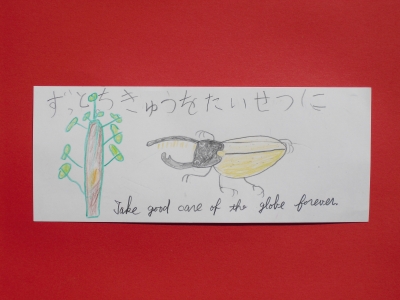 ずっとちきゅうをたいせつに
Take good care of the globe forever.